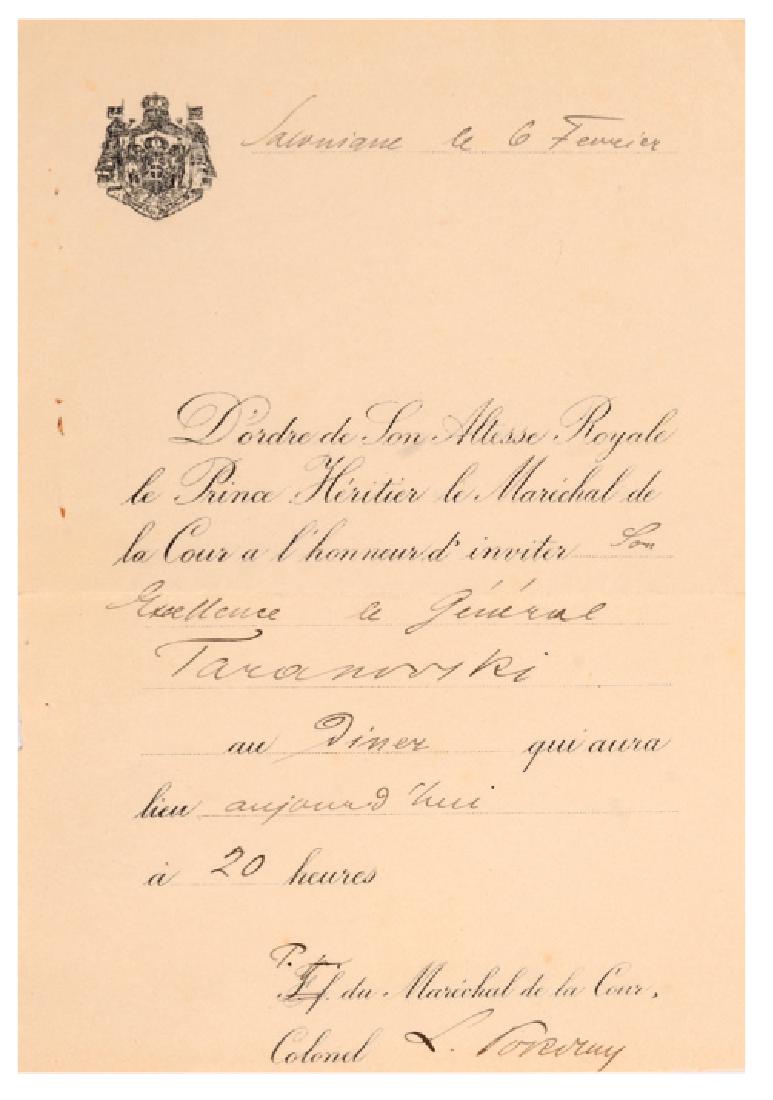 Salonique le 6 Fevrier
D'ordre de Son Altesse Royale
le Prince Héritier le Maréchal de
la Cour a l'honneur d' inviter Son
Exellence le Général
Taranovski
au Diner qui aura
lieu aujourd'hui
à 20 heures
P. f. du Maréchal de la Cour,
Colonel L.